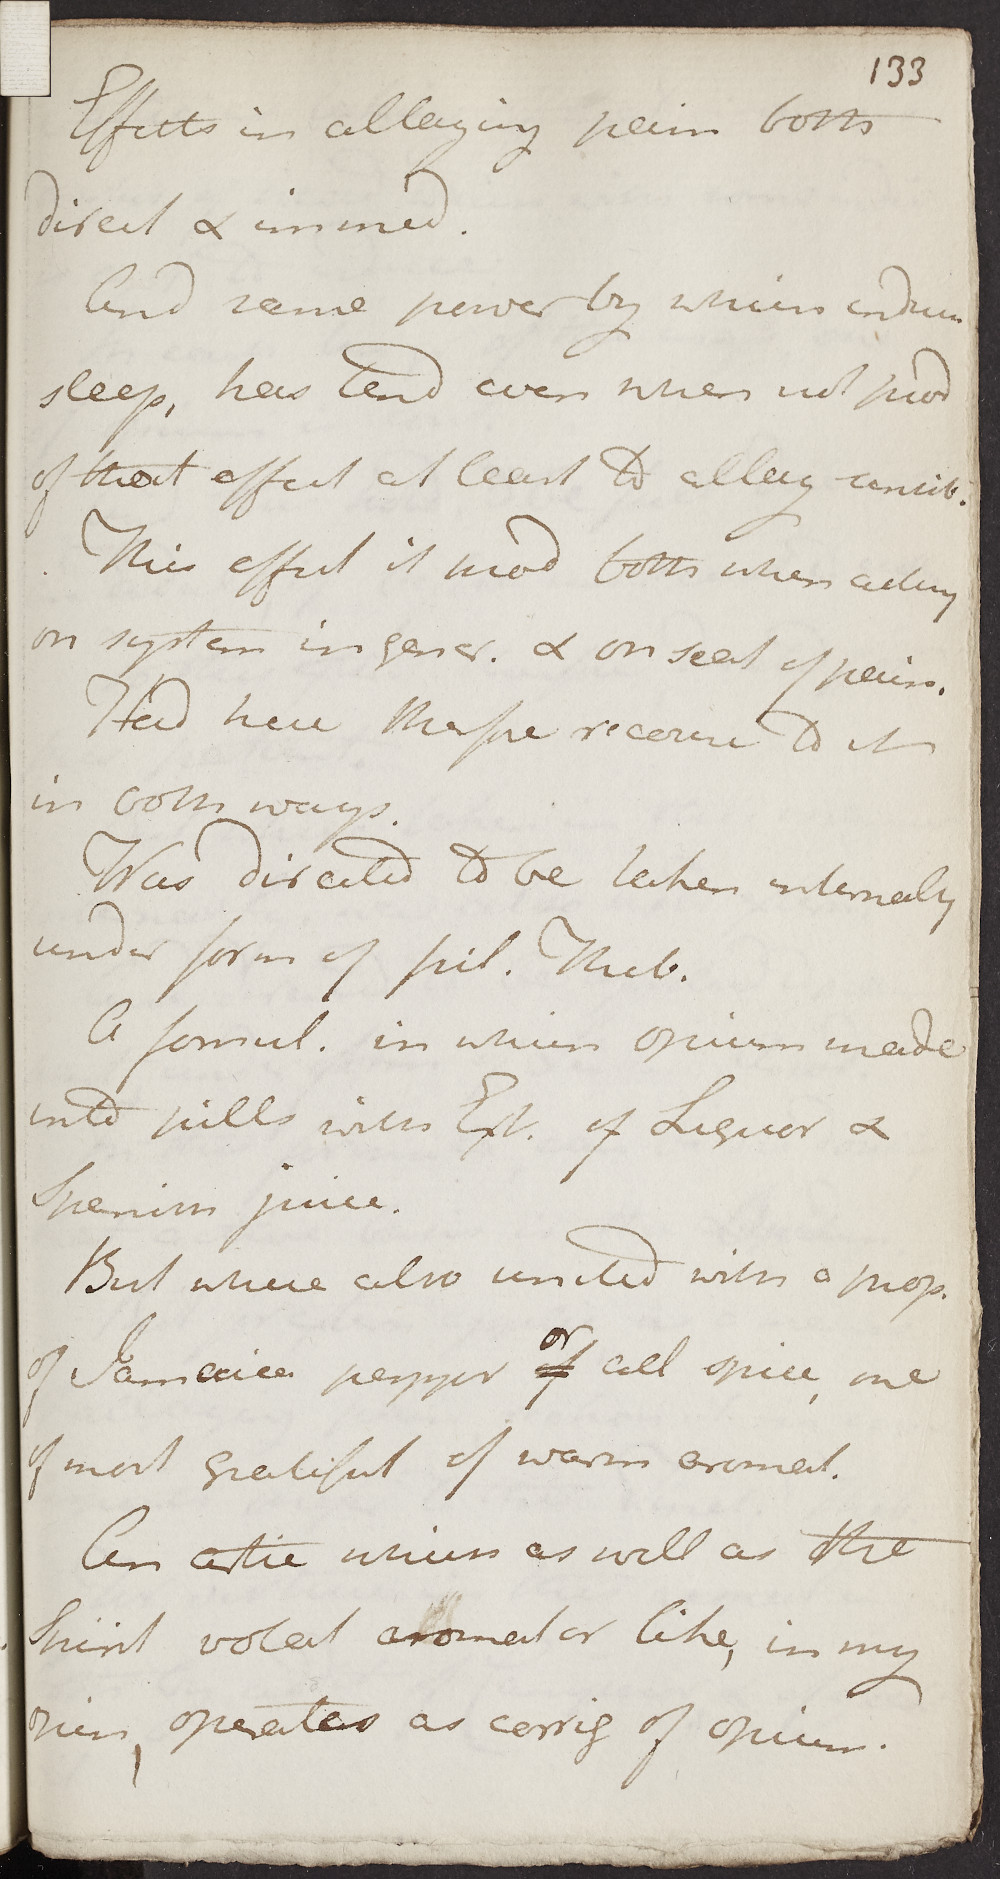 133
Effects in allaying pain both
direct & immed.
And same power by which induces
sleep, has tend even when not prod
of that effect at least to allay sensib.
This effect it prod both when acting
on system in gener. & on seat of pain.
Had here therfre recourse to it
in both ways.
Was directed to be taken internally
under form of pil. Theb.
A formul. in which opium made
into pills with Ext. of Liquor &
Spanish juice.
But where also united with a prop.
of Jamaica pepper or all spice, one
of most gratiful of warm aromat.
An artic which as well as the
Spirit volat aromat or like, in my
opin, operates as corrig of opium.